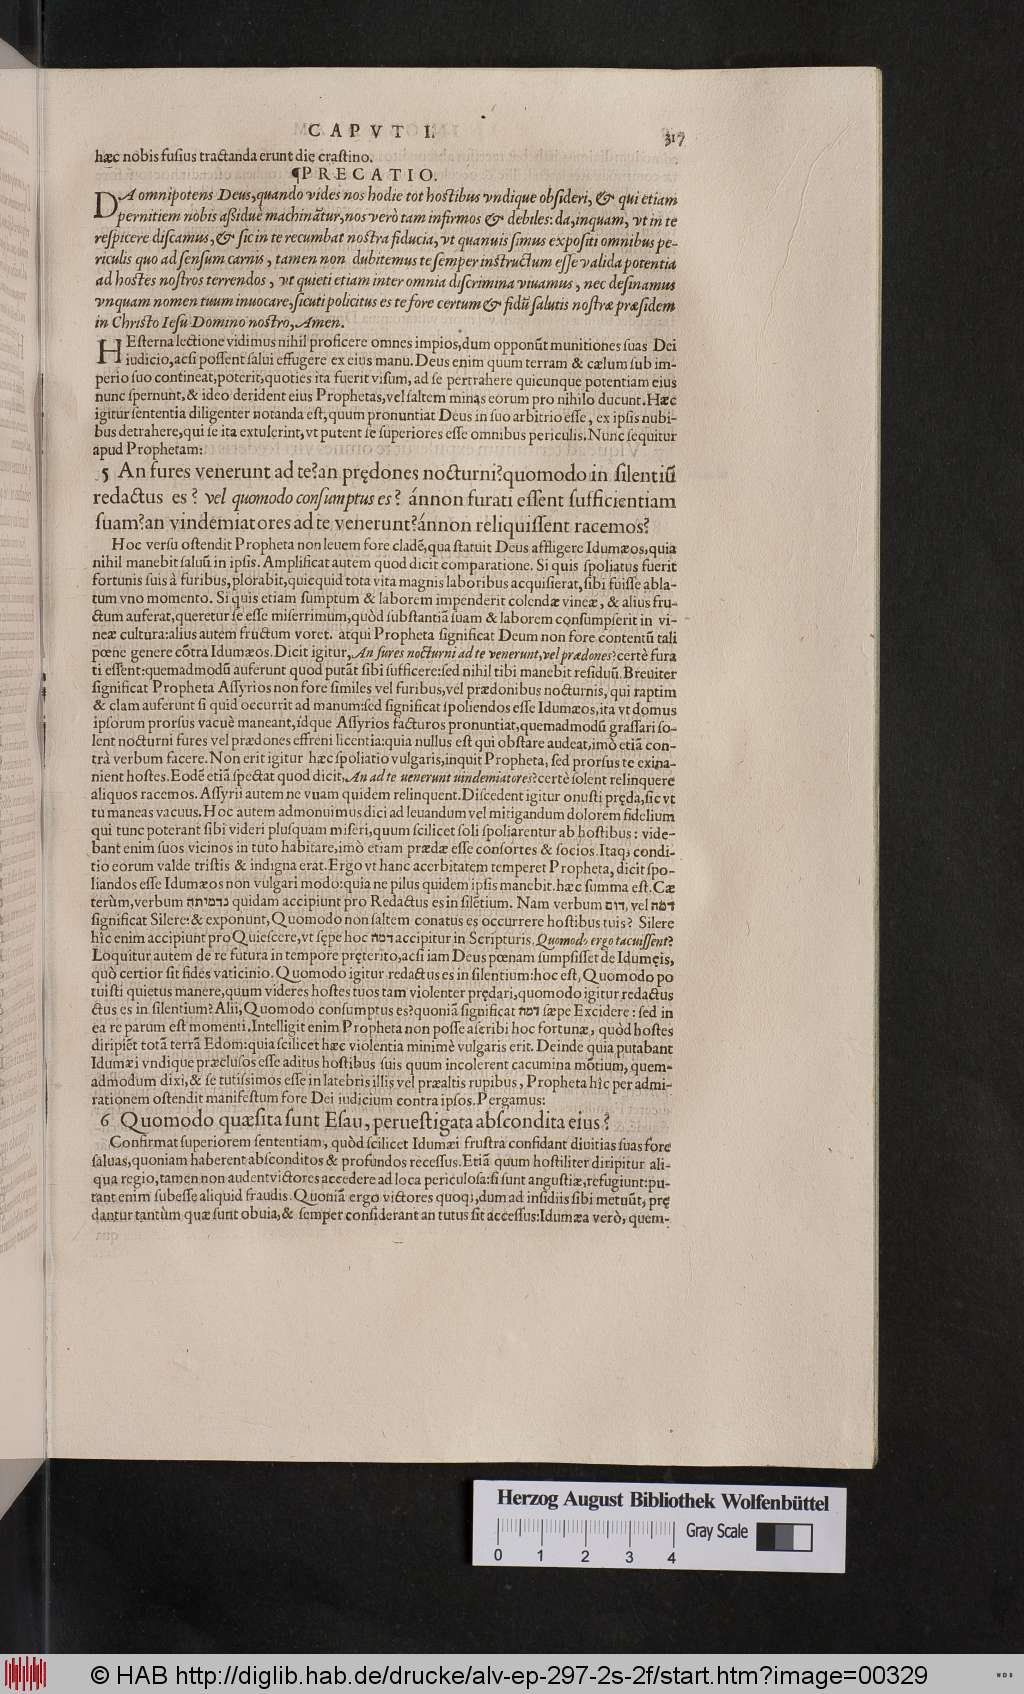 CAPVT I.
317
hæc nobis fusius tractanda erunt die crastino.
¶PRECATIO.
DA omnipotens Deus, quando vides nos hodie tot hostibus vndique obsideri, & qui etiam
pernitiem nobis aßiduè machinãtur, nos verò tam infirmos & debiles: da, inquam, vt in te
respicere discamus, & sic in te recumbat nostra fiducia, vt quanuis simus expositi omnibus pe-
riculis quo ad sensum carnis, tamen non dubitemus te semper instructum esse valida potentia
ad hostes nostros terrendos, vt quieti etiam inter omnia discrimina viuamus, nec desinamus
vnquam nomen tuum inuocare, sicuti policitus es te fore certum & fidũ salutis nostræ præsidem
in Christo Iesu Domino nostro, Amen.
HEsterna lectione vidimus nihil proficere omnes impios, dum opponũt munitiones suas Dei
iudicio, acsi possent salui effugere ex eius manu. Deus enim quum terram & cælum sub im-
perio suo contineat, poterit, quoties ita fuerit visum, ad se pertrahere quicunque potentiam eius
nunc spernunt, & ideo derident eius Prophetas, vel saltem minas eorum pro nihilo ducunt. Hæc
igitur sententia diligenter notanda est, quum pronuntiat Deus in suo arbitrio esse, ex ipsis nubi-
bus detrahere, qui se ita extulerint, vt putent se superiores esse omnibus periculis. Nunc sequitur
apud Prophetam:
5 An fures venerunt ad te? an prędones nocturni? quomodo in silentiũ
redactus es? vel quomodo consumptus es? ánnon furati essent sufficientiam
suam? an vindemiatores ad te venerunt? ánnon reliquissent racemos?
Hoc versu ostendit Propheta non leuem fore cladẽ, qua statuit Deus affligere Idumæos, quia
nihil manebit saluũ in ipsis. Amplificat autem quod dicit comparatione. Si quis spoliatus fuerit
fortunis suis à furibus, plorabit, quicquid tota vita magnis laboribus acquisierat, sibi fuisse abla-
tum vno momento. Si quis etiam sumptum & laborem impenderit colendæ vineæ, & alius fru-
ctum auferat, queretur se esse miserrimum, quòd substantiã suam & laborem consumpserit in vi-
neæ cultura: alius autem fructum voret. atqui Propheta significat Deum non fore contentũ tali
pœne genere cõtra Idumæos. Dicit igitur, An fures nocturni ad te venerunt, vel prædones? certè fura
ti essent: quemadmodũ auferunt quod putãt sibi sufficere: sed nihil tibi manebit residuũ. Breuiter
significat Propheta Assyrios non fore similes vel furibus, vel prædonibus nocturnis, qui raptim
& clam auferunt si quid occurrit ad manum: sed significat spoliendos esse Idumæos, ita vt domus
ipsorum prorsus vacuè maneant, idque Assyrios facturos pronuntiat, quemadmodũ grassari so-
lent nocturni fures vel prædones effreni licentia: quia nullus est qui obstare audeat, imò etiã con-
trà verbum facere. Non erit igitur hæc spoliatio vulgaris, inquit Propheta, sed prorsus te exina-
nient hostes. Eodẽ etiã spectat quod dicit, An ad te uenerunt uindemiatores? certè solent relinquere
aliquos racemos. Assyrii autem ne vuam quidem relinquent. Discedent igitur onusti pręda, sic vt
tu maneas vacuus. Hoc autem admonuimus dici ad leuandum vel mitigandum dolorem fidelium
qui tunc poterant sibi videri plusquam miseri, quum scilicet soli spoliarentur ab hostibus: vide-
bant enim suos vicinos in tuto habitare, imò etiam prædæ esse consortes & socios. Itaq; condi-
tio eorum valde tristis & indigna erat. Ergo vt hanc acerbitatem temperet Propheta, dicit spo-
liandos esse Idumæos non vulgari modo: quia ne pilus quidem ipsis manebit. hæc summa est. Cæ
terùm, verbum נדמיתה quidam accipiunt pro Redactus es in silẽtium. Nam verbum דום, vel דמה
significat Silere: & exponunt, Quomodo non saltem conatus es occurrere hostibus tuis? Silere
hîc enim accipiunt pro Quiescere, vt sępe hoc דמה accipitur in Scripturis. Quomodo ergo tacuissent?
Loquitur autem de re futura in tempore pręterito, acsi iam Deus pœnam sumpsisset de Idumęis,
quò certior sit fides vaticinio. Quomodo igitur redactus es in silentium: hoc est, Quomodo po
tuisti quietus manere, quum videres hostes tuos tam violenter prędari, quomodo igitur redactus
ctus es in silentium? Alii, Quomodo consumptus es? quoniã significat דמה sæpe Excidere: sed in
ea re parum est momenti. Intelligit enim Propheta non posse ascribi hoc fortunæ, quòd hostes
diripiẽt totã terrã Edom: quia scilicet hæc violentia minimè vulgaris erit. Deinde quia putabant
Idumæi vndique præclusos esse aditus hostibus suis quum incolerent cacumina mõtium, quem-
admodum dixi, & se tutissimos esse in latebris illis vel præaltis rupibus, Propheta hîc per admi-
rationem ostendit manifestum fore Dei iudicium contra ipsos. Pergamus:
6 Quomodo quæsita sunt Esau, peruestigata abscondita eius?
Confirmat superiorem sententiam, quòd scilicet Idumæi frustra confidant diuitias suas fore
saluas, quoniam haberent absconditos & profundos recessus. Etiã quum hostiliter diripitur ali-
qua regio, tamen non audent victores accedere ad loca periculosa: si sunt angustiæ, refugiunt: pu-
tant enim subesse aliquid fraudis. Quoniã ergo victores quoq;, dum ad insidiis sibi metuũt, prę
dantur tantùm quæ sunt obuia, & semper considerant an tutus sit accessus: Idumæa verò, quem-
Herzog August Bibliothek Wolfenbüttel
Gray Scale
0 1 2 3 4
© HAB http://diglib.hab.de/drucke/alv-ep-297-2s-2f/start.htm?image=00329
WDB